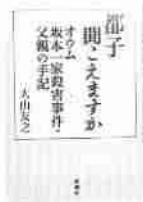 都子
聞こえますか
オウム
坂本一家殺害事件・
父親の手記
大山友之
新潮社